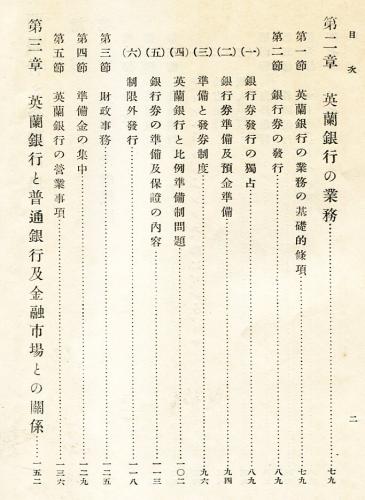 目次
二
第二章 英蘭銀行の業務……七九
第一節 英蘭銀行の業務の基礎的條項……七九
第二節 銀行券の發行……八九
(一) 銀行券發行の獨占……八九
(二) 銀行券準備及預金準備……九四
(三) 準備と發券制度……九六
(四) 英蘭銀行と比例準備制問題……一〇二
(五) 銀行券の準備及保證の內容……一一三
(六) 制限外發行……一一八
第三節 財政事務……一二二
第四節 準備金の集中……一二九
第五節 英蘭銀行の營業事項……一三六
第三章 英蘭銀行と普通銀行及金融市場との關係……一五二